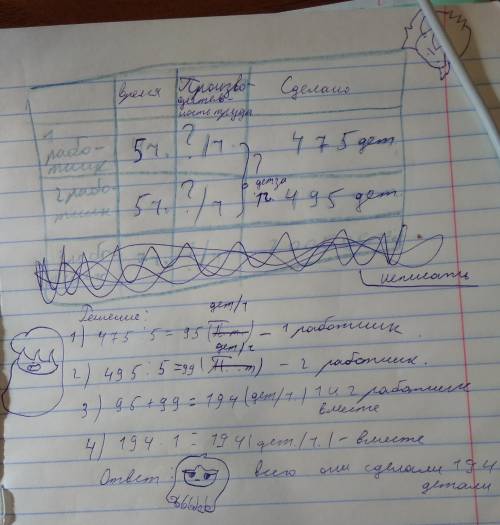 время Произво- Сделано
дитель-
ность труда
1
рабо-
тник 5ч. ?/ч. ? 475 дет
2 рабо-
тник 5ч. ?/ч. дет за 1ч. 495 дет
неписать
Решение:
дет/ч
1) 475 : 5 = 95 ( ) – 1 работник.
дет/ч
2) 495 : 5 = 99 ( ) – 2 работник.
3) 95 + 99 = 194 (дет/ч.) 1 и 2 работник
вместе
4) 194 · 1 = 194 (дет./ч.) – вместе
Ответ: всего они сделали 194
детали